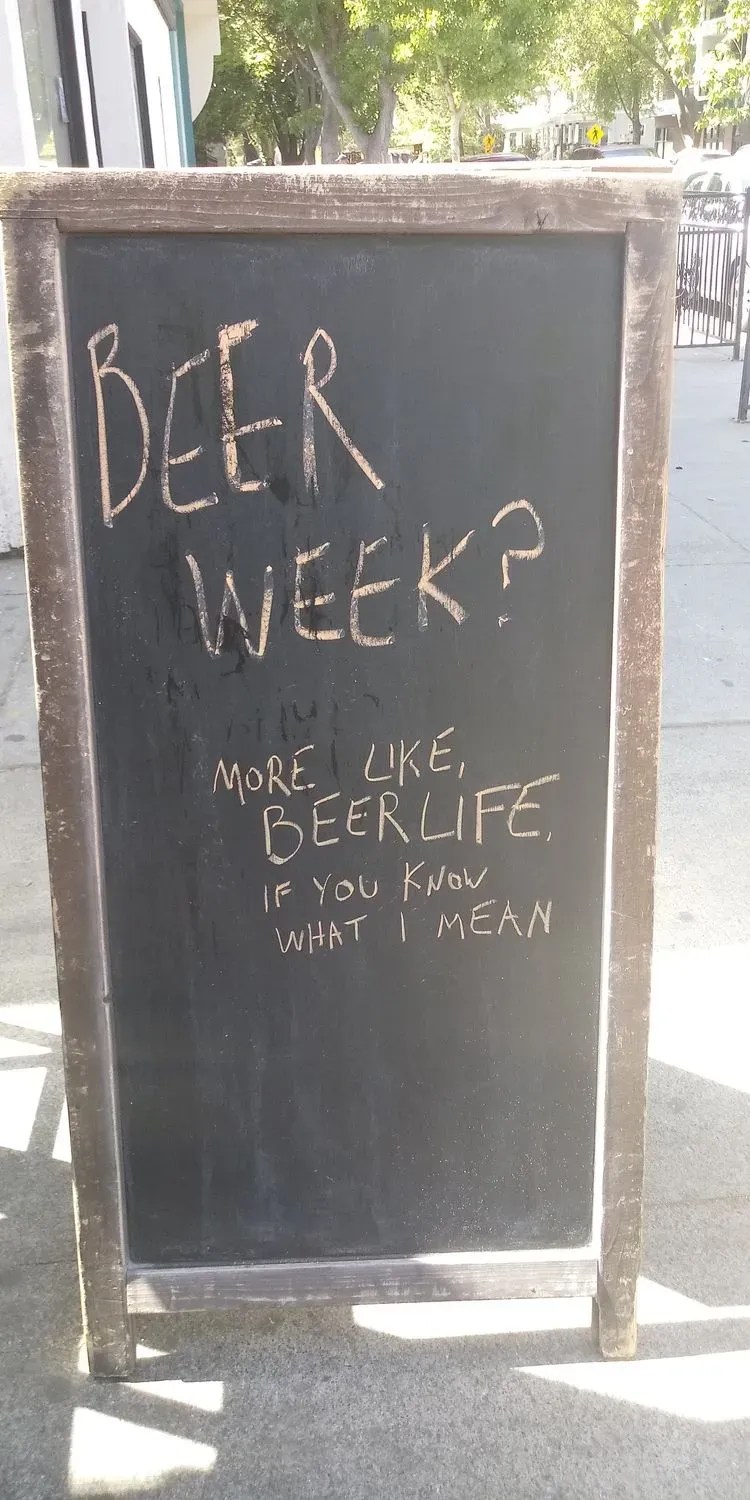 BEER
WEEK?
MORE LIKE,
BEERLIFE,
IF YOU KNOW
WHAT I MEAN